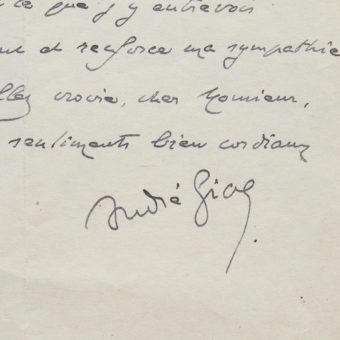 ce que j'y entrevois
et renforce ma sympathie
croire, cher Monsieur,
sentiments bien cordiaux
André Gide